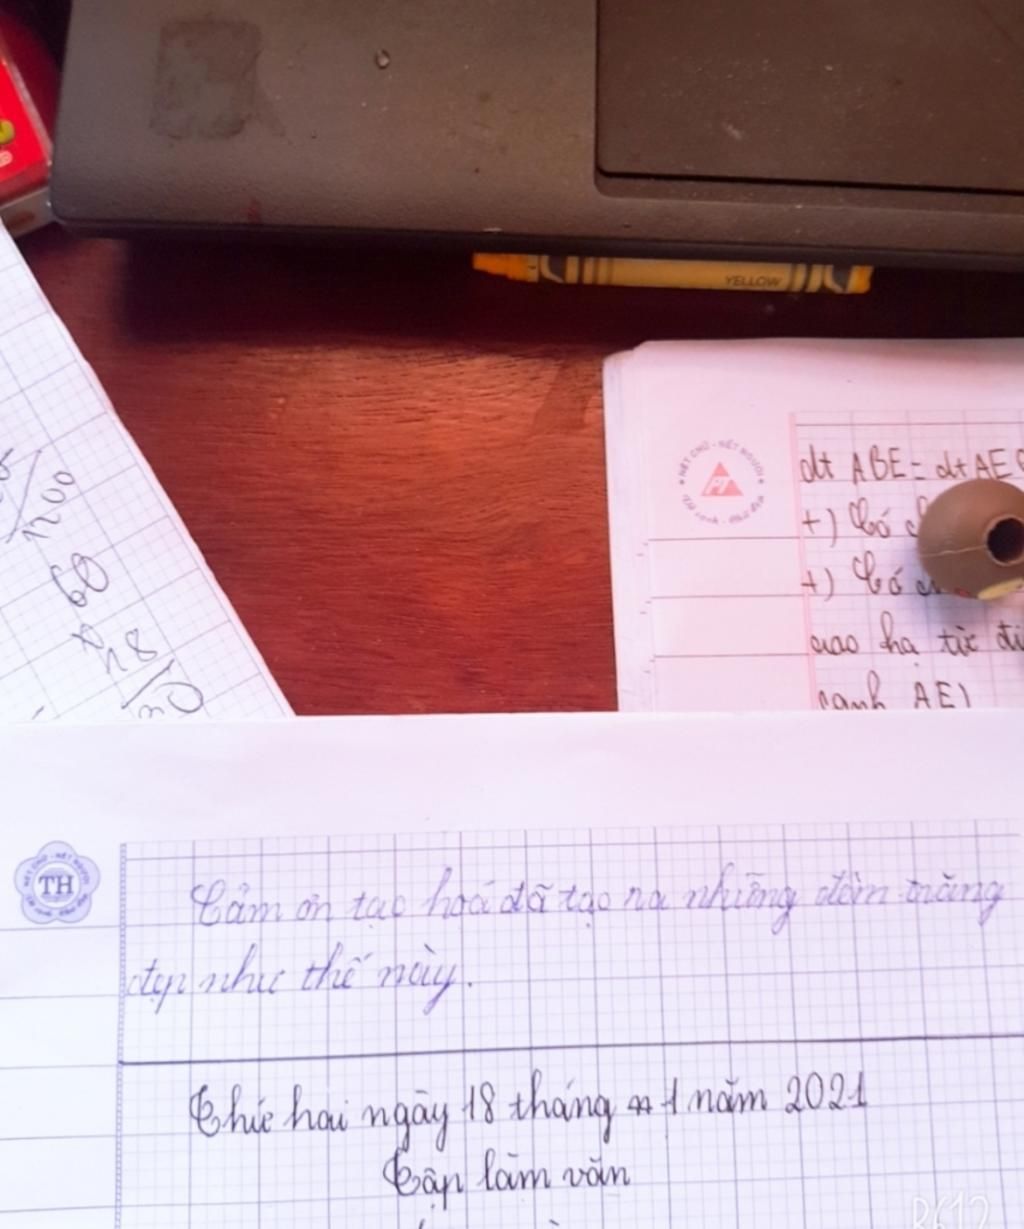 YELLOW
NÉT CHỮ - NẾT NGƯỜI
PT
dt ABE = dt AE
+) Có
+) Có
cao hạ từ
cạnh AE)
1200
60
NÉT CHỮ - NẾT NGƯỜI
TH
Cảm ơn tạo hoá đã tạo ra những đêm trăng
đẹp như thế này.
Thứ hai ngày 18 tháng 1 năm 2021
Tập làm văn